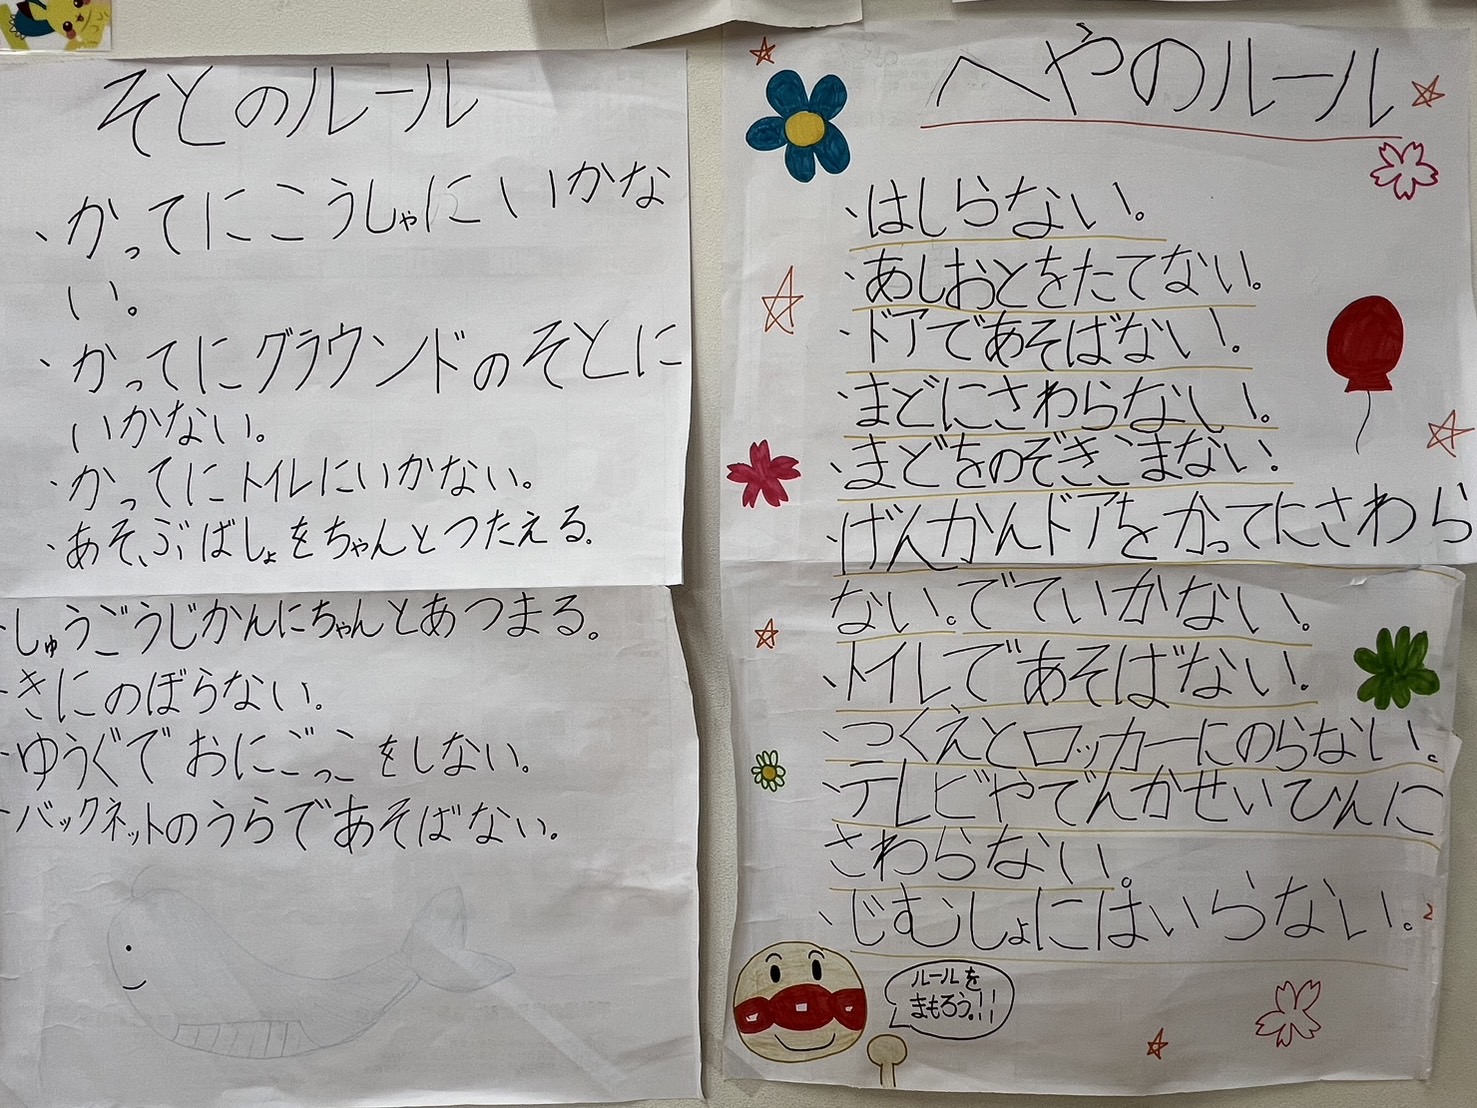 そとのルール
、かってにこうしゃにいかな
い。
、かってにグラウンドのそとに
いかない。
、かってにトイレにいかない。
、あそぶばしょをちゃんとつたえる。
、しゅうごうじかんにちゃんとあつまる。
、きにのぼらない。
、ゆうぐでおにごっこをしない。
、バックネットのうらであそばない。
へやのルール
、はしらない。
、あしおとをたてない。
、ドアであそばない。
、まどにさわらない。
、まどをのぞきこまない。
、げんかんドアをかってにさわら
ない。でていかない。
、トイレであそばない。
、つくえとロッカーにのらない。
、テレビやでんかせいひんに
さわらない。
、じむしょにはいらない。
ルールを
まもろう。!!